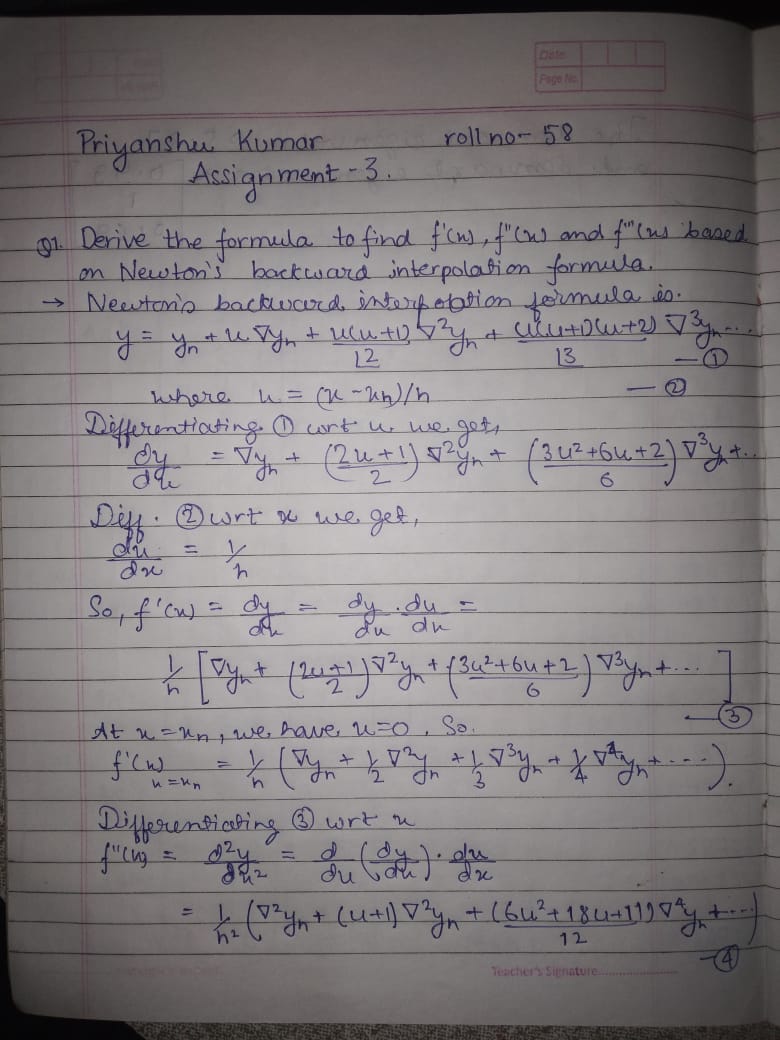 Date
Page No.
Priyanshu Kumar roll no- 58
Assignment - 3.
Q1. Derive the formula to find f'(x), f''(x) and f'''(x) based
on Newton's backward interpolation formula.
→ Newton's backward interpolation formula is.
y = yₙ + u ∇yₙ + u(u+1)/⌊2 ∇²yₙ + u(u+1)(u+2)/⌊3 ∇³yₙ ... — ①
where u = (x - xₙ)/h — ②
Differentiating ① wrt u we get,
dy/du = ∇yₙ + (2u+1)/2 ∇²yₙ + (3u²+6u+2)/6 ∇³yₙ + ..
Diff. ② wrt x we get,
du/dx = 1/h
So, f'(x) = dy/dx = dy/du . du/dx =
1/h [∇yₙ + (2u+1)/2 ∇²yₙ + (3u²+6u+2)/6 ∇³yₙ + ... ] — ③
At x = xₙ, we have u=0. So.
f'(x) x=xₙ = 1/h (∇yₙ + 1/2 ∇²yₙ + 1/3 ∇³yₙ + 1/4 ∇⁴yₙ + ----).
Differentiating ③ wrt x
f''(x) = d²y/dx² = d/du (dy/dx) . du/dx
= 1/h² (∇²yₙ + (u+1) ∇²yₙ + (6u²+18u+11)/12 ∇⁴yₙ + ---) — ④
Teacher's Signature..................